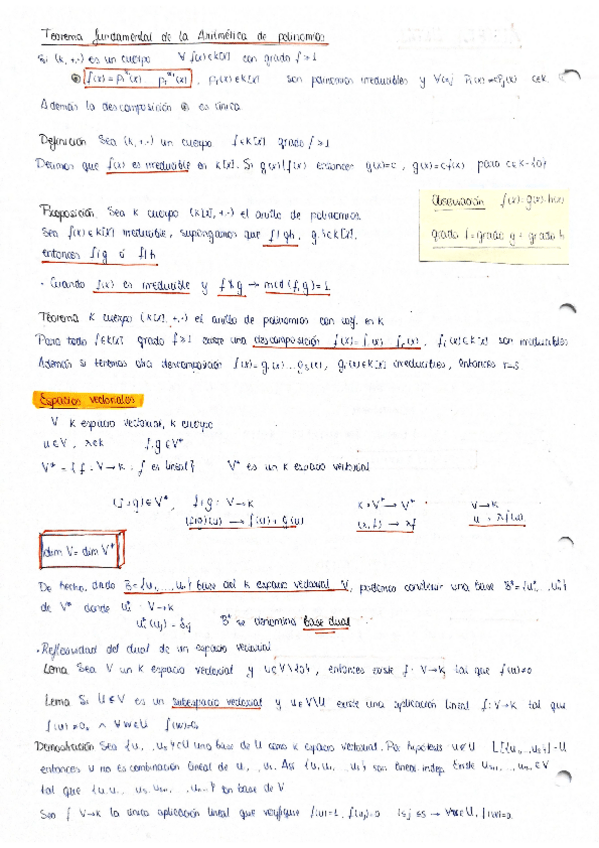 Teorema fundamental de la Aritmética de polinomios
Si (k,+,·) es un cuerpo ∀ f(x)∈k[x] con grado f>1
son polinomios irreducibles y
Además la descomposición es única.
Definición Sea (k,+,·) un cuerpo f∈k[x] grado f>1
Decimos que f(x) es irreducible en k[x]. Si g(x)|f(x) entonces g(x)=c, g(x)=cf(x) para c∈k-{0}
Observación f(x)=g(x)·h(x)
grado f=grado g + grado h
Proposición. Sea k cuerpo (k[x],+,·) el anillo de polinomios
Sea f(x)∈k[x] irreducible, supongamos que f|gh, g,h∈k[x],
entonces f|g ó f|h
· Cuando f(x) es irreducible y f∤g → mcd(f,g)=1
Teorema k cuerpo (k[x],+,·) el anillo de polinomios con coef. en k
Para todo f∈k[x] grado f≥1 existe una descomposición son irreducibles
Además si tenemos otra descomposición irreducibles, entonces r=s
Espacios vectoriales
V k espacio vectorial, k cuerpo
u∈V, λ∈k f,g∈V*
V* = {f: V→k : f es lineal} V* es un k espacio vectorial
(f+g)∈V*, f+g: V→k k×V*→V* V→k
(f+g)(u) → f(u)+g(u) (λ,f) → λf u → λf(u)
dim V = dim V*
De hecho, dado B={u₁,...,uₙ} base del k espacio vectorial V, podemos considerar una base B*={u₁*,...,uₙ*}
de V* donde V→k
B* se denomina base dual
· Reflexividad del dual de un espacio vectorial
Lema Sea V un k espacio vectorial y u∈V\{0}, entonces existe f: V→k, tal que f(u)≠0
Lema Si U⊆V es un subespacio vectorial y u∈V\U existe una aplicación lineal f: V→k tal que
f(u)≠0, ∧ ∀w∈U f(w)=0
Demostración Sea una base de U como k espacio vectorial. Por hipótesis u∉U
entonces u no es combinación lineal de Así son lineal. indep. Existe
tal que son base de V
Sea f: V→k la única aplicación lineal que verifique f(u)=1,